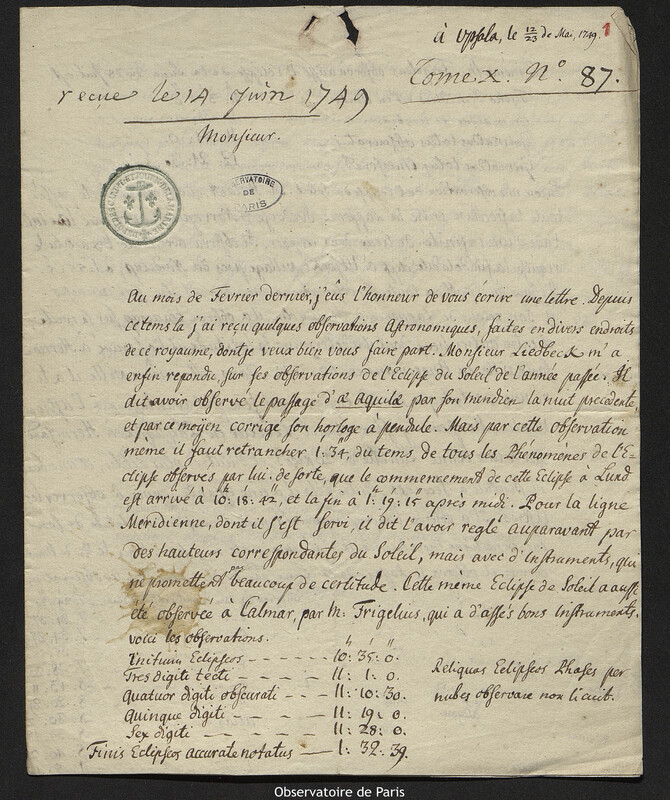 à Upsala, le 12/23 de Mai, 1749. 1
Tome X. N.° 87.
reçue le 14 Juin 1749
Monsieur.
OBSERVATOIRE
DE
PARIS
Au mois de Fevrier dernier, j'eûs l'honneur de vous écrire une lettre. Depuis
ce tems la j'ai reçu quelques observations Astronomiques, faites en divers endroits
de ce royaume, dont je veux bien vous faire part. Monsieur Liedbeck m'a
enfin repondu, sur ses observations de l'Eclipse du Soleil de l'année passée. Il
dit avoir observé le passage d'α Aquilæ par son meridien la nuit precedente,
et par ce moyen corrigé son horloge à pendule. Mais par cette observation
même il faut retrancher 1': 34", du tems de tous les Phénomènes de l'E-
clipse observés par lui. de sorte, que le commencement de cette Eclipse à Lund
est arrivé à 10h: 18': 42", et la fin à 1h: 19': 15" après midi. Pour la ligne
Meridienne, dont il s'est servi, il dit l'avoir reglé auparavant par
des hauteurs correspondantes du Soleil, mais avec d'instruments, qui
ne promettent pas beaucoup de certitude. Cette même Eclipse de Soleil a aussi
été observée à Calmar, par M. Frigelius, qui a d'assés bons instruments.
voici les observations.
Initium Eclipseos - - - - 10: 35: 0.
Tres digiti tecti - - - - 11: 1: 0.
Quatuor digiti obscurati - - 11: 10: 30.
Quinque digiti - - - - 11: 19: 0.
Sex digiti - - - - 11: 28: 0.
Finis Eclipseos accurate notatus — 1: 32: 39.
Reliquas Eclipseos Phases per
nubes observare non licuit.
Observatoire de Paris